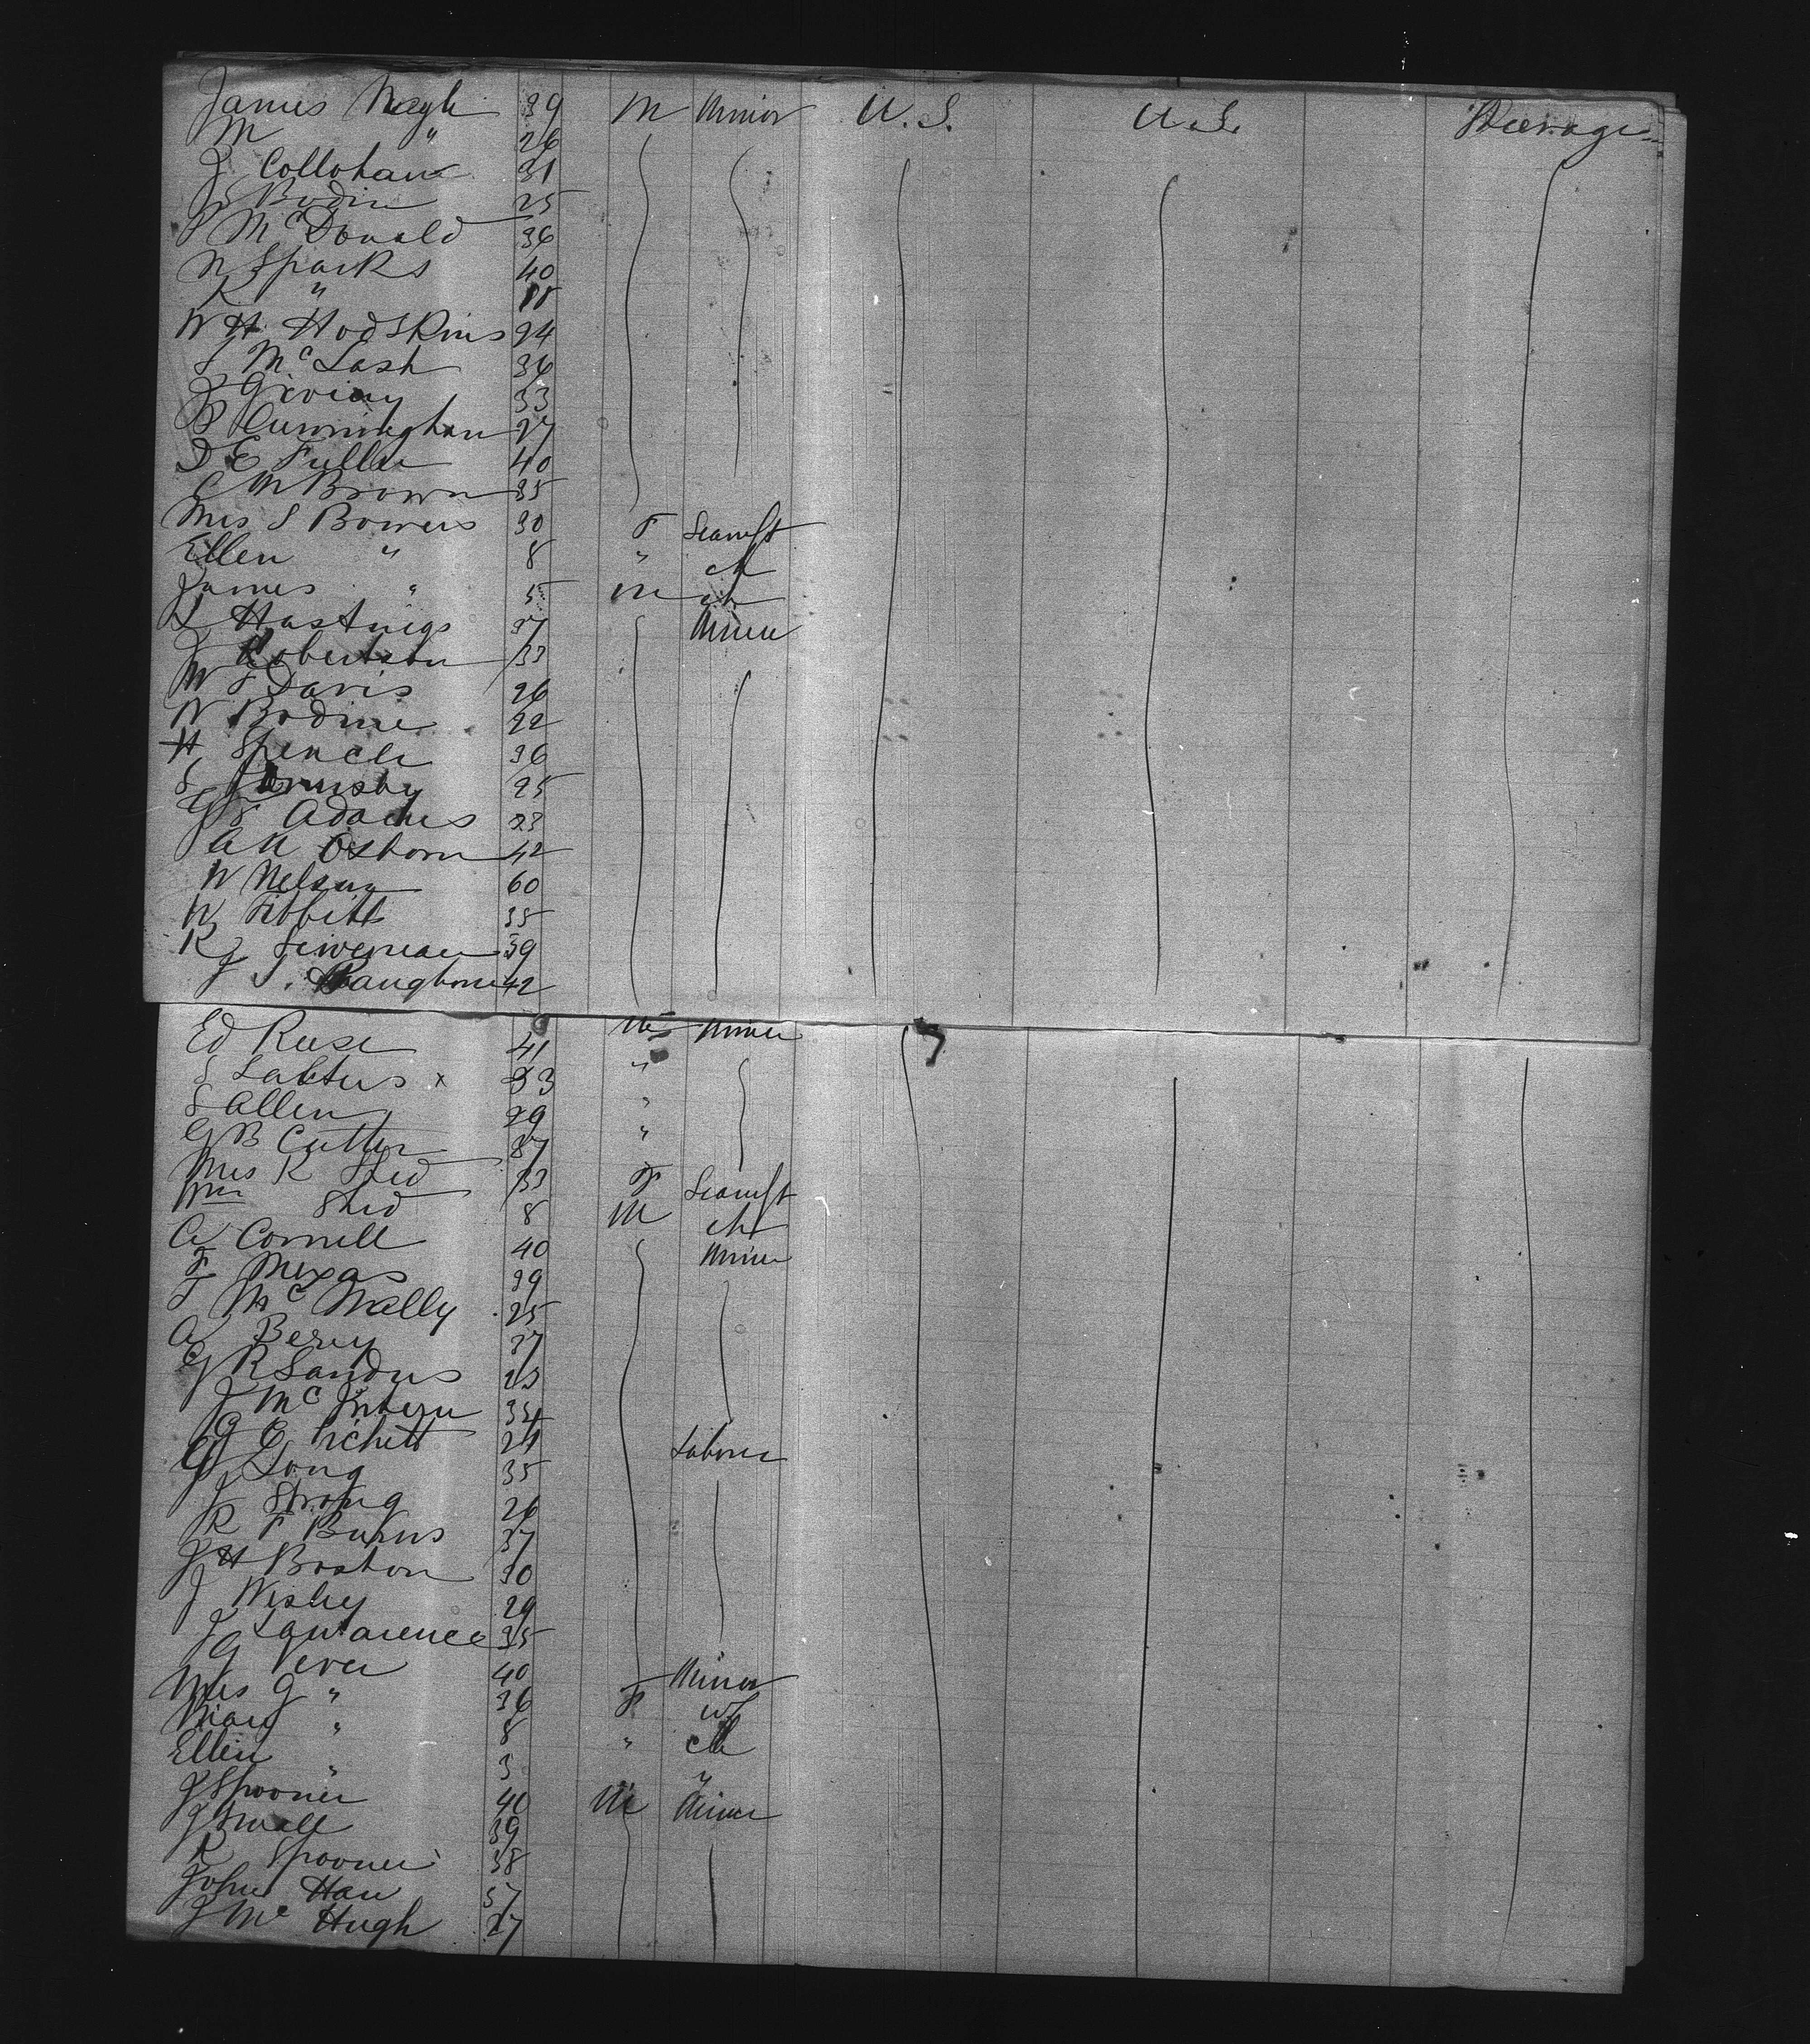 James Nagle 39 M Miner U.S. U.S. Steerage
M " 26
J Collohan 31
Bodin 25
P McDonald 36
N Sparks 40
K "
W H Hodskins 24
S McLash 36
J 33
P Cunningham 27
D E Fuller 40
C M Brown 35
Mrs S Bowers 30 F Seamst
Ellen " 8 " ch
James " 5 M ch
Hastings 37 Miner
J Robertson 33
W S Davis 26
W Bodine 22
H Spencer 36
S Ormsby 25
G F Adams 23
A N Osborn 42
W Nelson 60
W Tibbitts 35
R J 39
J S. Baughorn 42
Ed Reese 41 M Miner
S Laktus x 33 "
S Allen 29 "
G B Cutter 37 "
Mrs K Shed 33 F Seamst
Wm Shed 8 M ch
A Cornell 40 Miner
F Mexas 29
T McNally 25
A Berry 37
G R Sandus 23
J McIntyre 34
G E Pichett 24 Laborer
G Long 35
J Strong 26
R F Burns 37
J H Boston 30
J Wesley 29
J Lawrarence 35
G Vever 40 Miner
Mrs G " 36 F wf
Mary " 8 " ch
Ellen " 3 " "
J Spooner 40 M Miner
J Small 39
R Spooner 38
John Han 57
J McHugh 27